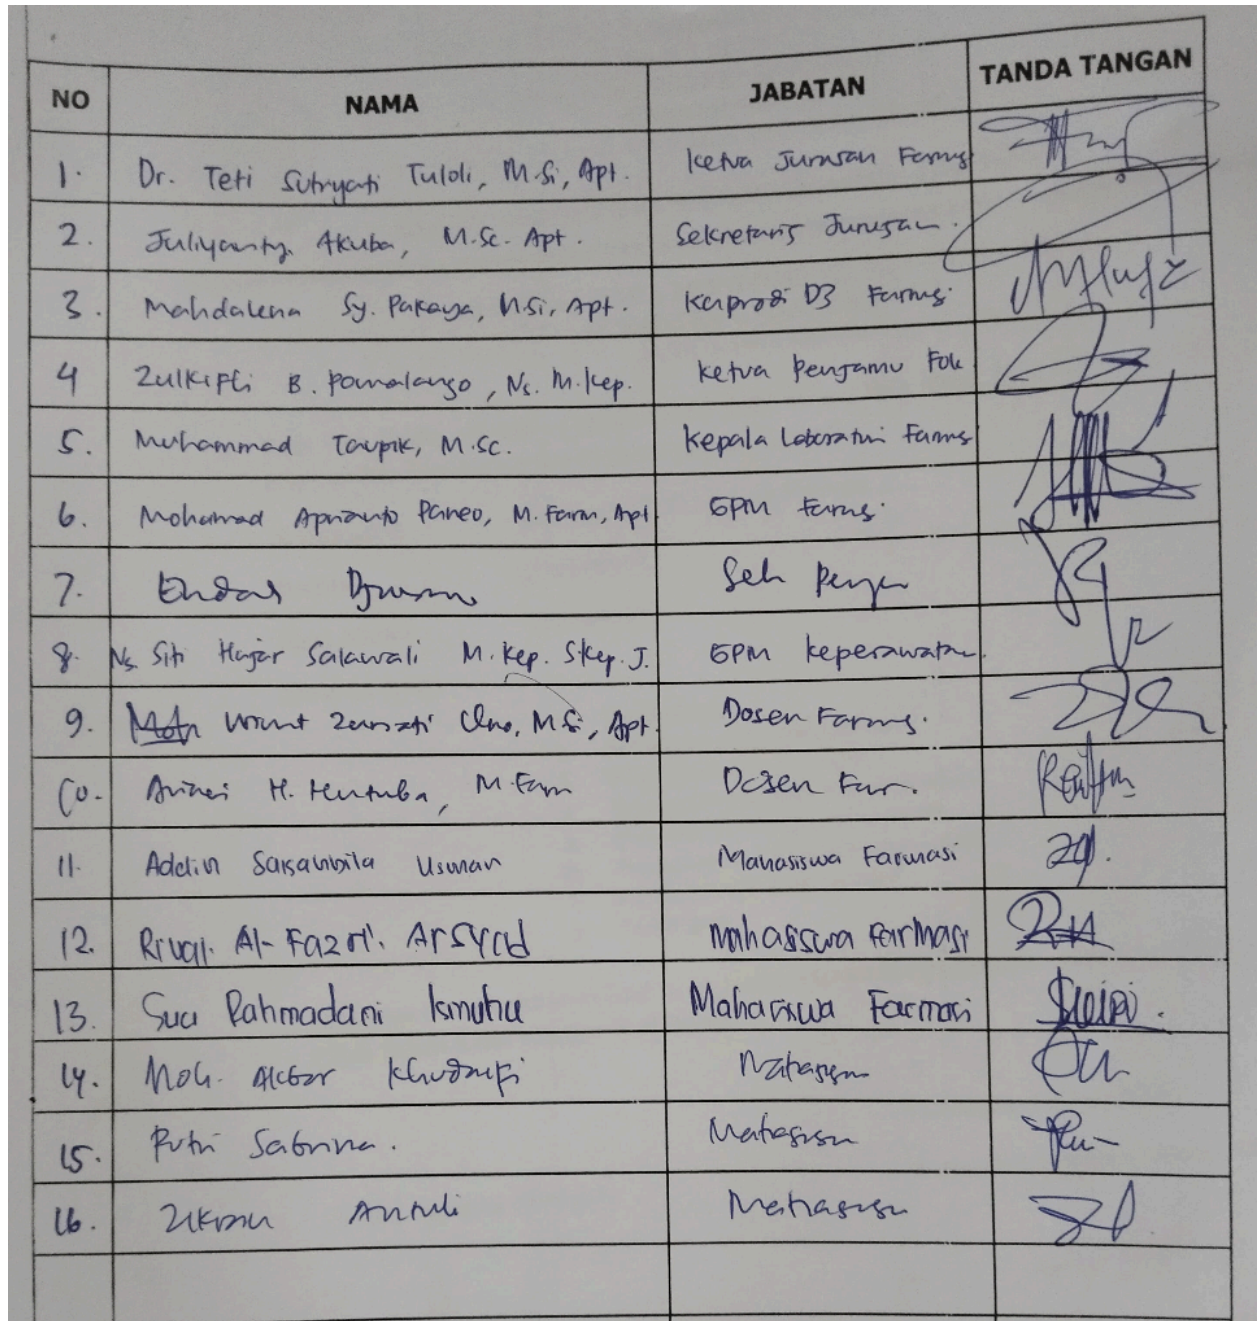 NO NAMA JABATAN TANDA TANGAN
1. Dr. Teti Sutryati Tuloli, M.Si, Apt. Ketua Jurusan Farmasi
2. Juliyanty Akuba, M.Sc. Apt. Sekretaris Jurusan.
3. Mahdalena Sy. Pakaya, M.Si, Apt. Kaprodi D3 Farmasi
4 Zulkifli B. Pomalango, Ns. M.Kep. Ketua Penjamu Fok
5. Muhammad Taupik, M.Sc. Kepala Laboratori Farmasi
6. Mohamad Aprianto Paneo, M.Farm, Apt GPM Farmasi
7. Endah
8. Ns. Siti Hajar Salawali M.Kep. SKep. J. GPM Keperawatan
9. Zuriati Uno, M.Si, Apt. Dosen Farmasi.
10. H. Hutuba, M.Farm Dosen Far.
11. Addin Salsabila Usman Mahasiswa Farmasi
12. Al-Fazri. Arsyad Mahasiswa Farmasi
13. Suci Rahmadani Mahasiswa Farmasi
14. Moh. Akbar Khudzaifi Mahasiswa
15. Putri Sabrina. Mahasiswa
16. Zikran Antuli Mahasiswa